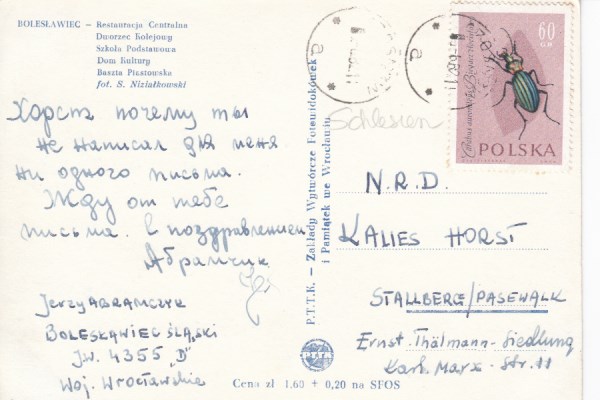 BOLESŁAWIEC – Restauracja Centralna
Dworzec Kolejowy
Szkoła Podstawowa
Dom Kultury
Baszta Piastowska
fot. S. Niziałkowski
Хорст почему ты
не написал для меня
ни одного письма.
Жду от тебе
письма. С поздравлением
Абрамчик
Jerzy ABRAMCZYK
BOLESŁAWIEC ŚLĄSKI
JW. 4355 „D"
Woj. Wrocławskie
Cena zł 1.60 + 0,20 na SFOS
P.T.T.K. – Zakłady Wytwórcze Fotowidokówek
i Pamiątek we Wrocławiu
PTTK
a
a
Schlesien
60
GR
POLSKA
N.R.D.
KALIES HORST
STALLBERG/PASEWALK
Ernst-Thälmann-Siedlung
Karl-Marx-Str. 11